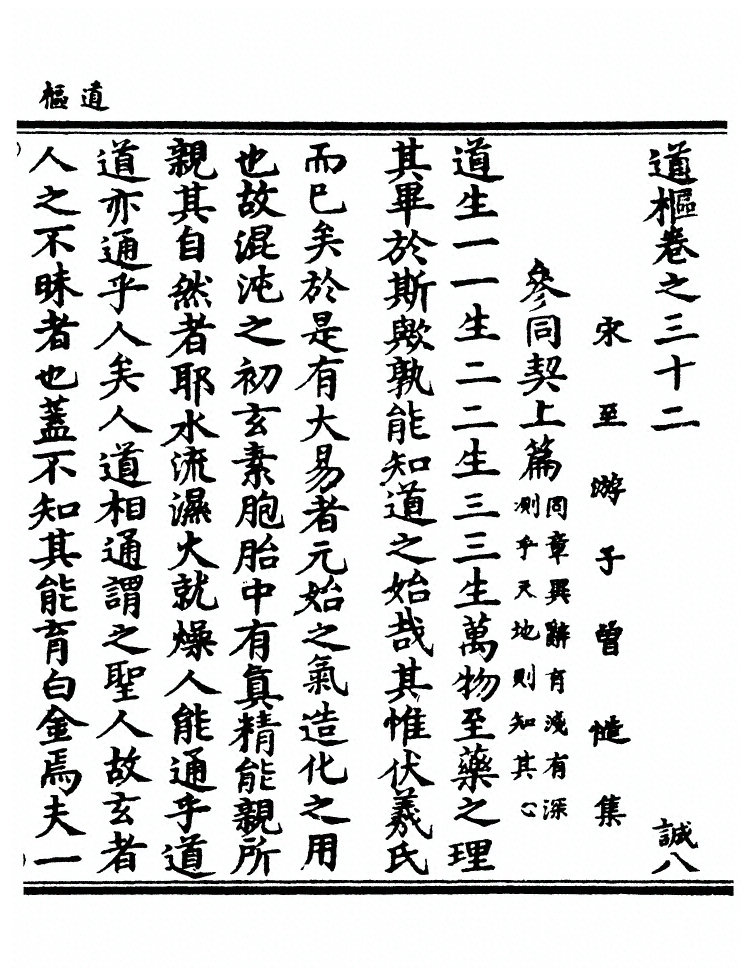 道樞
道樞卷之三十二 誠八
宋至游子曾慥集
參同契上篇
同章異辭有淺有深
測乎天地則知其心
道生一一生二二生三三生萬物至藥之理
其畢於斯歟孰能知道之始哉其惟伏羲氏
而已矣於是有大易者元始之氣造化之用
也故混沌之初玄素胞胎中有真精能親所
親其自然者耶水流濕火就燥人能通乎道
道亦通乎人矣人道相通謂之聖人故玄者
人之不昧者也蓋不知其能育白金焉夫一